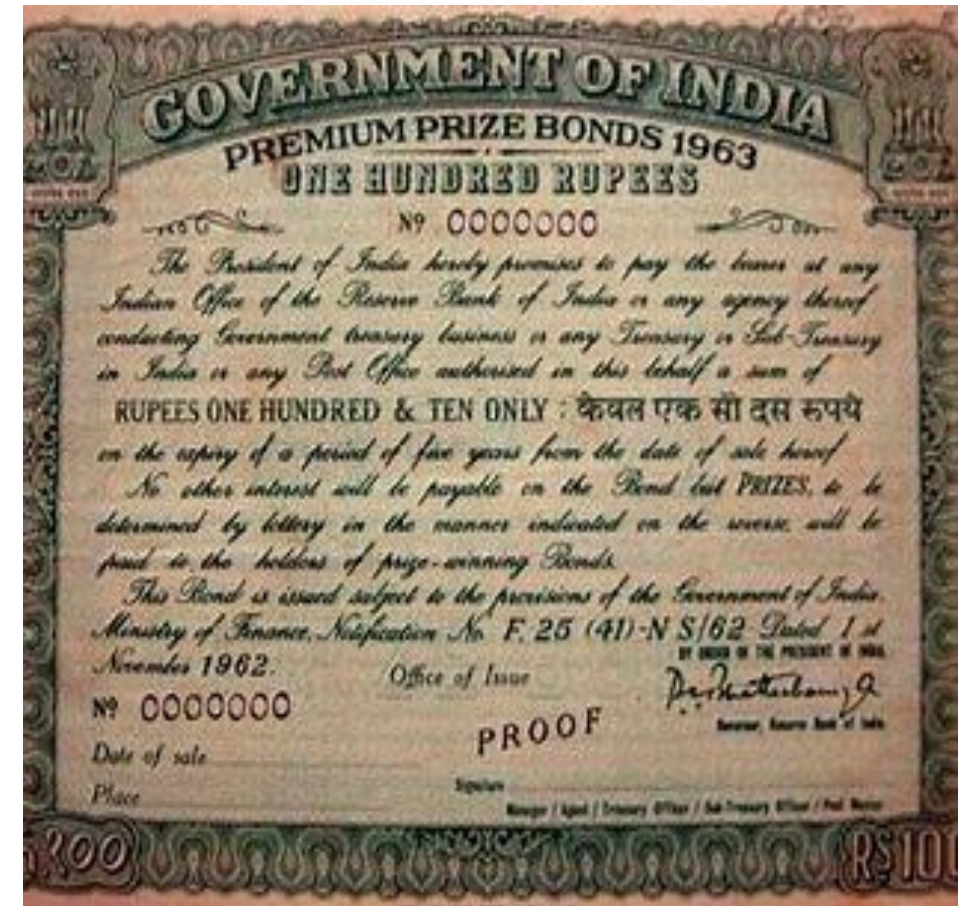 GOVERNMENT OF INDIA
PREMIUM PRIZE BONDS 1963
ONE HUNDRED RUPEES
Nº 0000000
The President of India hereby promises to pay the bearer at any
Indian Office of the Reserve Bank of India or any agency thereof
conducting Government treasury business or any Treasury or Sub-Treasury
in India or any Post Office authorised in this behalf a sum of
RUPEES ONE HUNDRED & TEN ONLY : केवल एक सौ दस रूपये
on the expiry of a period of five years from the date of sale hereof
No other interest will be payable on the Bond but PRIZES, to be
determined by lottery in the manner indicated on the reverse, will be
paid to the holders of prize-winning Bonds.
This Bond is issued subject to the provisions of the Government of India.
Ministry of Finance, Notification No. F. 25 (41)-N S/62 Dated 1 st
BY ORDER OF THE PRESIDENT OF INDIA
November 1962.
Office of Issue
Nº 0000000
Governor, Reserve Bank of India
PROOF
Date of sale
Signature
Place
Manager / Agent / Treasury Officer / Sub-Treasury Officer / Post Master
१००
RS 100